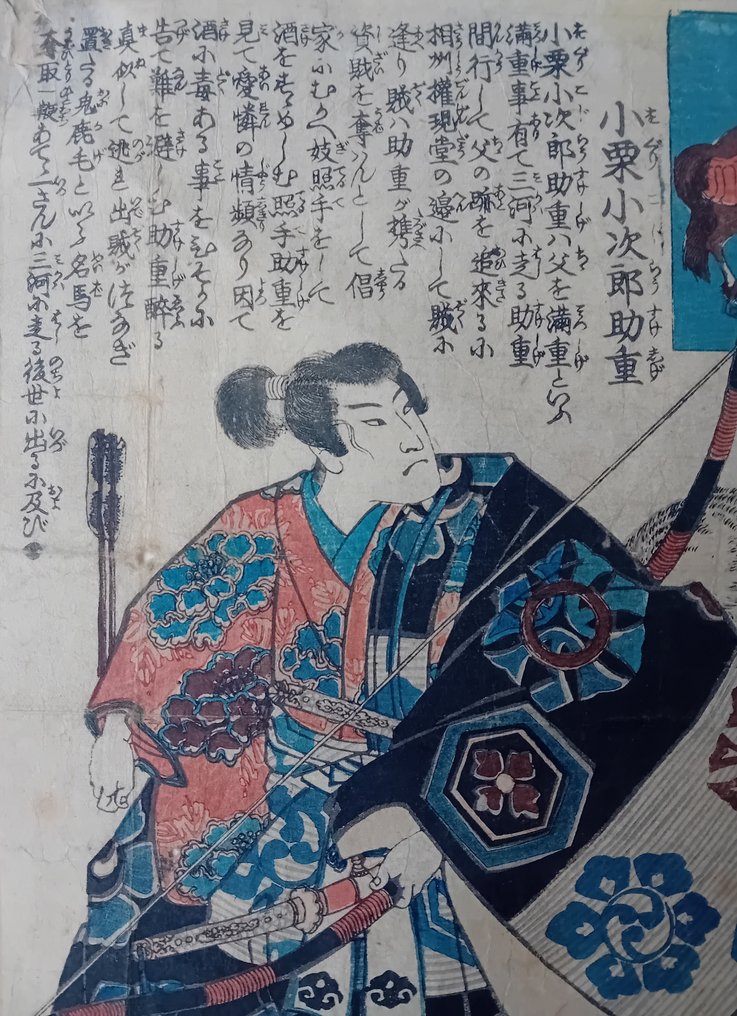 小栗小次郎助重
小栗小次郎助重ハ父を満重といふ
満重事有て三河に走る助重
間行して父の跡を追來るに
相州權現堂の邉にして賊に
逢り賊ハ助重が携たる
資財を奪んとして倡
家にむかへ妓照手をして
酒をすゝめしむ照手助重を
見て愛憐の情頻なり因て
酒に毒ある事をひそかに
告て難を避しむ助重醉る
真似して逃れ出賊がつなぎ
置たる鬼鹿毛といふ名馬を
奪取一鞭あてゝ一さんに三河に走る後世に出るに及び